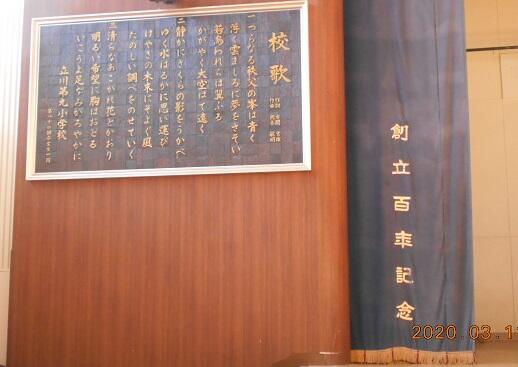 校歌
一つらなる秩父の峯は青く
浮く雲ましろに夢をさそい
若鳥われらは翼ふる
かがやく大空はて遠く
二静かにさくらの影をうかべ
ゆく水はるかに思い運び
けやきの木末にそよぐ風
たのしい調べをのせていく
三清らなあこがれ花とかおり
明るい希望に胸はおどる
いこうよ足なみかろやかに
立川第九小学校
創立百年記念
2020.03.1